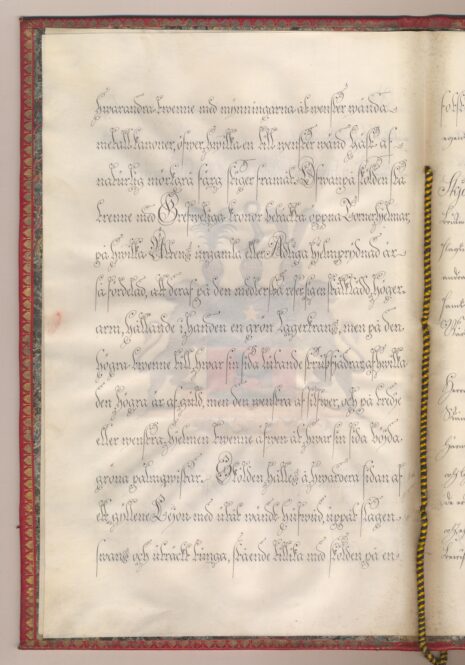 hwarandra twenne med mynningarna åt wenster wända
metall kanoner, öfwer hwilka en till wenster wänd häst af
naturlig mörkgrå färg stiger framåt. Ofwanpå skölden stå
trenne med Grefweliga kronor betäckta öppna Tornerhjelmar,
på hwilka Ättens urgamla eller Adeliga hjelmprydnad är
så fördelad, att deraf på den medlersta reser sig en stålklädd höger
arm, hållande i handen en grön lagerkrans, men på den
högra twenne till hwar sin sida lutande strutsfjädrar, af hwilka
den högra är af guld, men den wenstra af silfwer, och på tredje
eller wenstra hjelmen twenne äfwen åt hwar sin sida böjda
gröna palmqwistar. Skölden hålles å hwardera sidan af
ett gyllene Lejon med utåt wändt hufwud, uppåt slagen
swans och utsträckt tunga, stående tillika med skölden på en